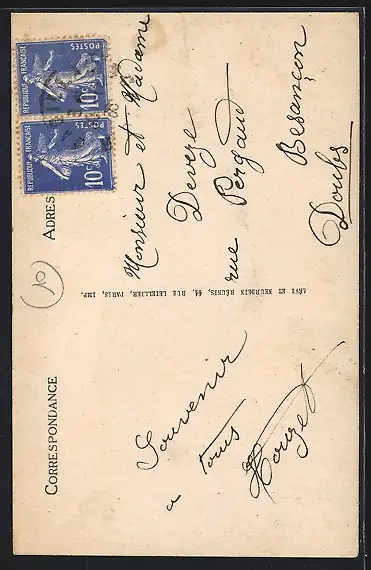 CORRESPONDANCE
Souvenir
a tous
LÉVY ET NEURDEIN RÉUNIS, 44, RUE LETELLIER, PARIS, IMP.
ADRES
POSTES
REPUBLIQUE FRANÇAISE
10c
POSTES
REPUBLIQUE FRANÇAISE
10c
10
Monsieur et Madame
Deveze
rue Pergaud
Besançon
Doubs